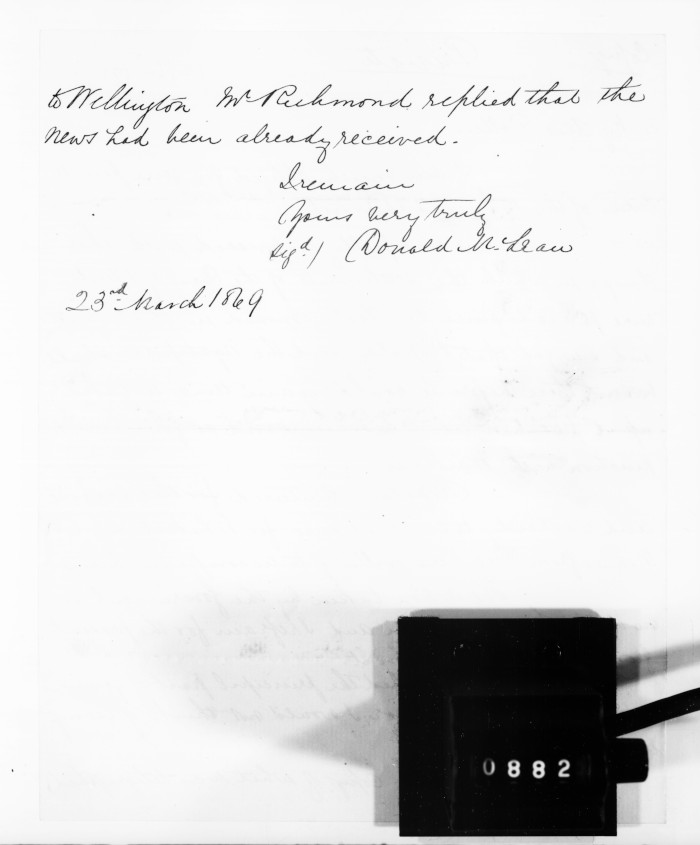 to Wellington Mr Richmond replied that the
news had been already received.
I remain
Yours very truly
sigd) Donald McLean
23rd March 1869
0882